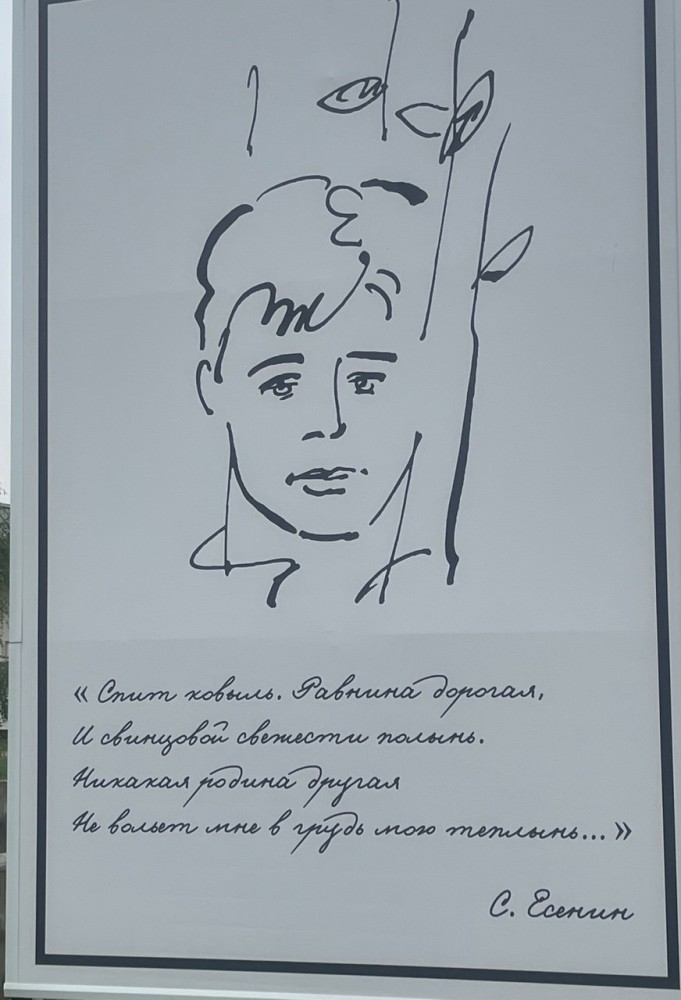 « Спит ковыль. Равнина дорогая,
И свинцовой свежести полынь.
Никакая родина другая
Не вольет мне в грудь мою теплынь... »
С. Есенин